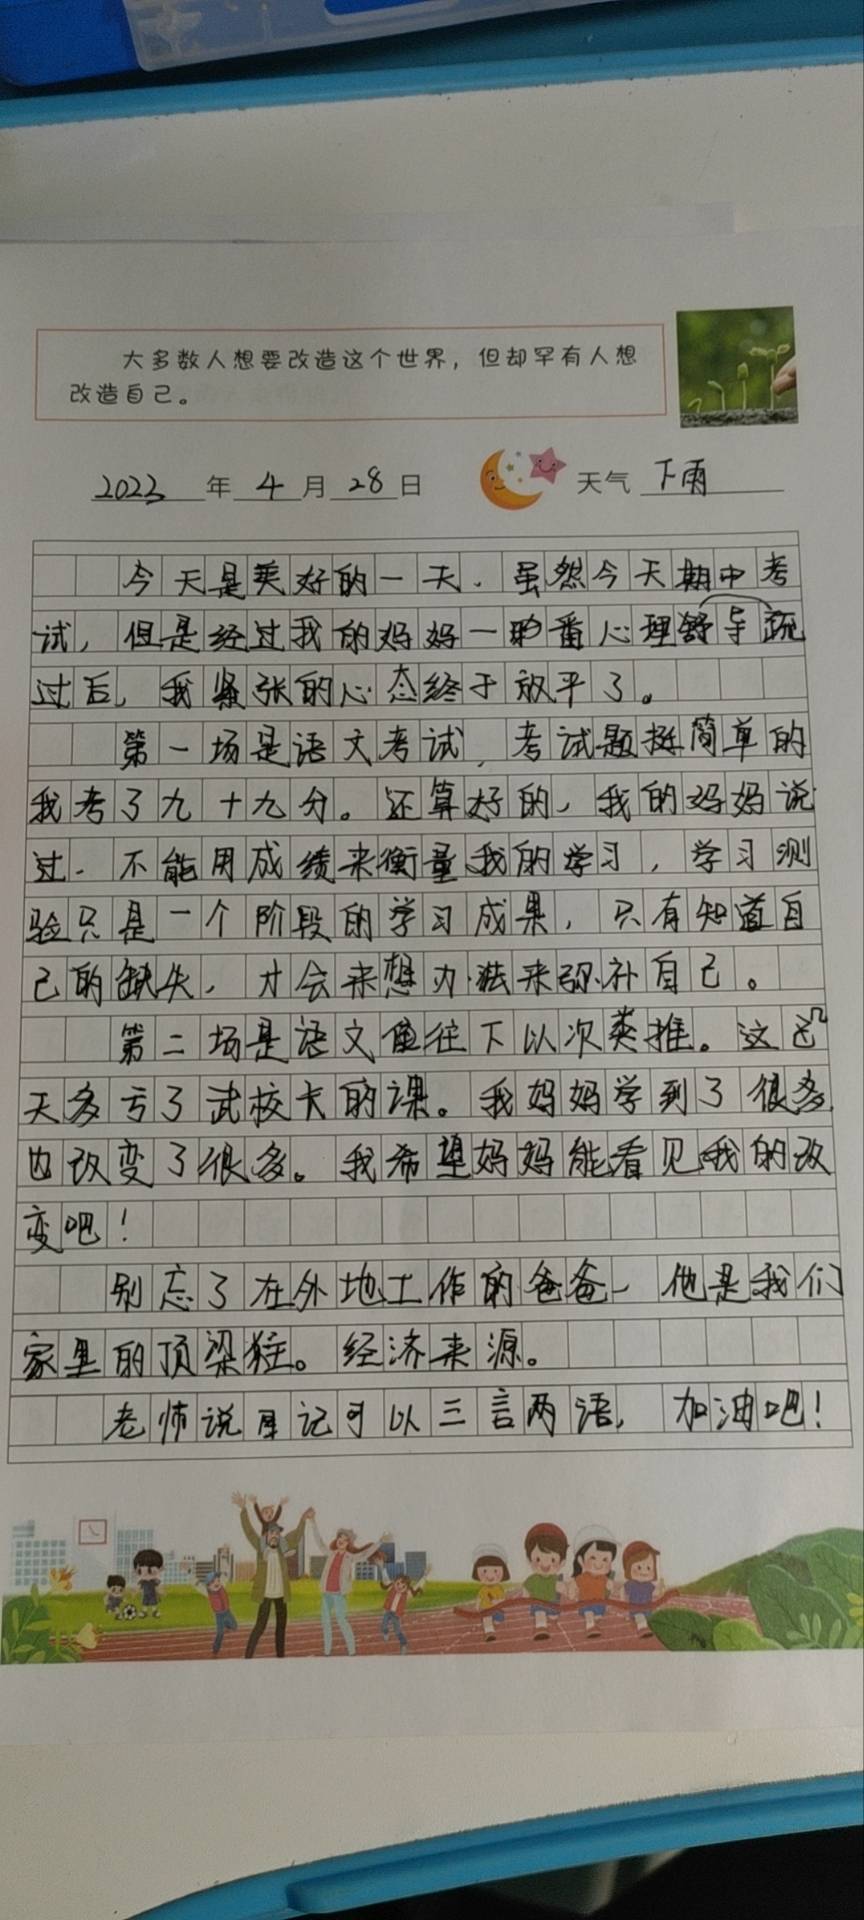 大多数人想要改造这个世界，但却罕有人想
改造自己。
2023年4月28日 天气 下雨
今天是美好的一天.虽然今天期中考
试，但是经过我的妈妈一番心理舒导疏
过后，我紧张的心态终于放平了。
第一场是语文考试，考试题挺简单的
我考了九十九分。还算好的，我的妈妈说
过.不能用成绩来衡量我的学习，学习测
验只是一个阶段的学习成果，只有知道自
己的缺失，才会来想办法来弥补自己。
第二场是语文 往下以次类推。这
天多亏了武校长的课。我妈妈学到了很多
也改变了很多。我希望妈妈能看见我的改
变吧！
别忘了在外地工作的爸爸，他是我们
家里的顶梁柱。经济来源。
老师说日记可以三言两语，加油吧！